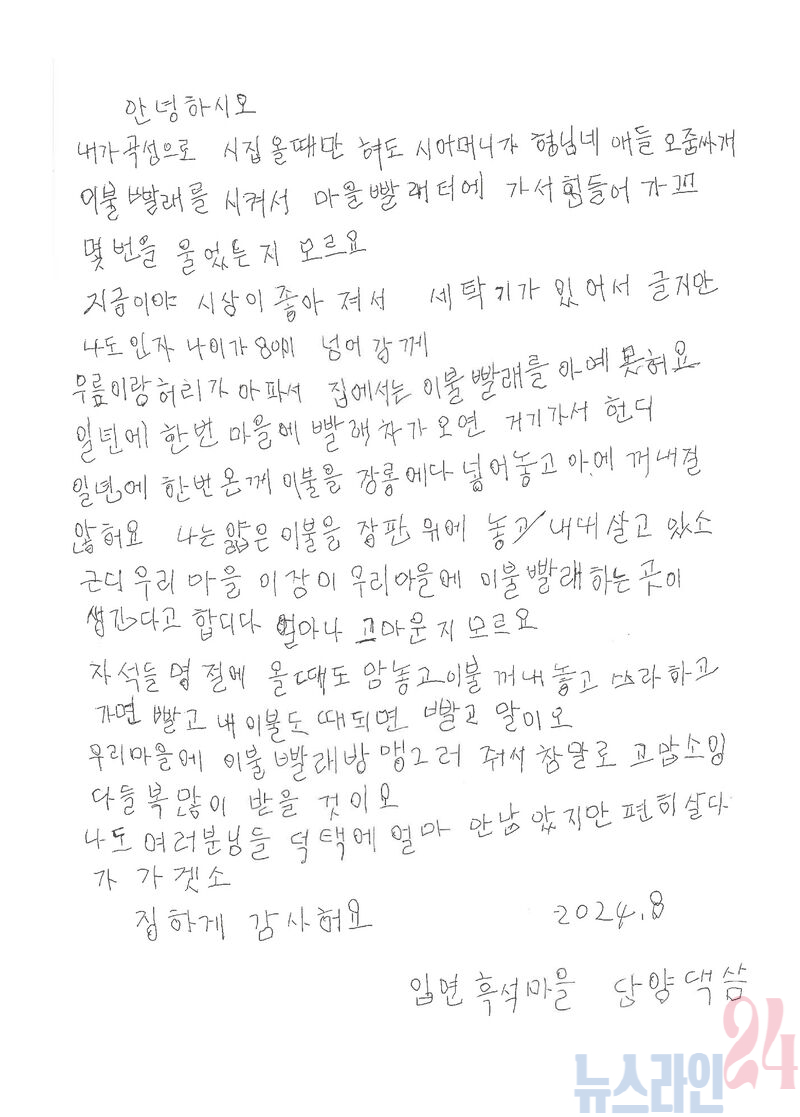 안녕하시오
내가 곡성으로 시집 올때만 혀도 시어머니가 형님네 애들 오줌싸개
이불 빨래를 시켜서 마을 빨래터에 가서 힘들어 가꼬
몇번을 울었는지 모르요
지금이야 시상이 좋아 져서 세탁기가 있어서 글지만
나도 인자 나이가 80이 넘어 감께
무릎이랑 허리가 아파서 집에서는 이불빨래를 아예 못혀요
일년에 한번 마을에 빨래차가 오면 거기가서 헌디
일년에 한번 온께 이불을 장롱에다 넣어놓고 아에 꺼내질
않혀요 나는 얇은 이불을 장판 위에 놓고 내내 살고 있소
근디 우리 마을 이장이 우리마을에 이불빨래하는 곳이
생긴다고 합디다 얼마나 고마운지 모르요
자석들 명절에 올때도 맘놓고 이불 꺼내놓고 쓰라하고
가면 빨고 내 이불도 때되면 빨고 말이오
우리마을에 이불빨래방 맹그러 줘서 참말로 고맙소잉
다들 복 많이 받을 것이오
나도 여러분님들 덕택에 얼마 안남았지만 편히살다
가 가겟소
징하게 감사혀요 2024.8
입면 흑석마을 단양댁 씀
뉴스라인24